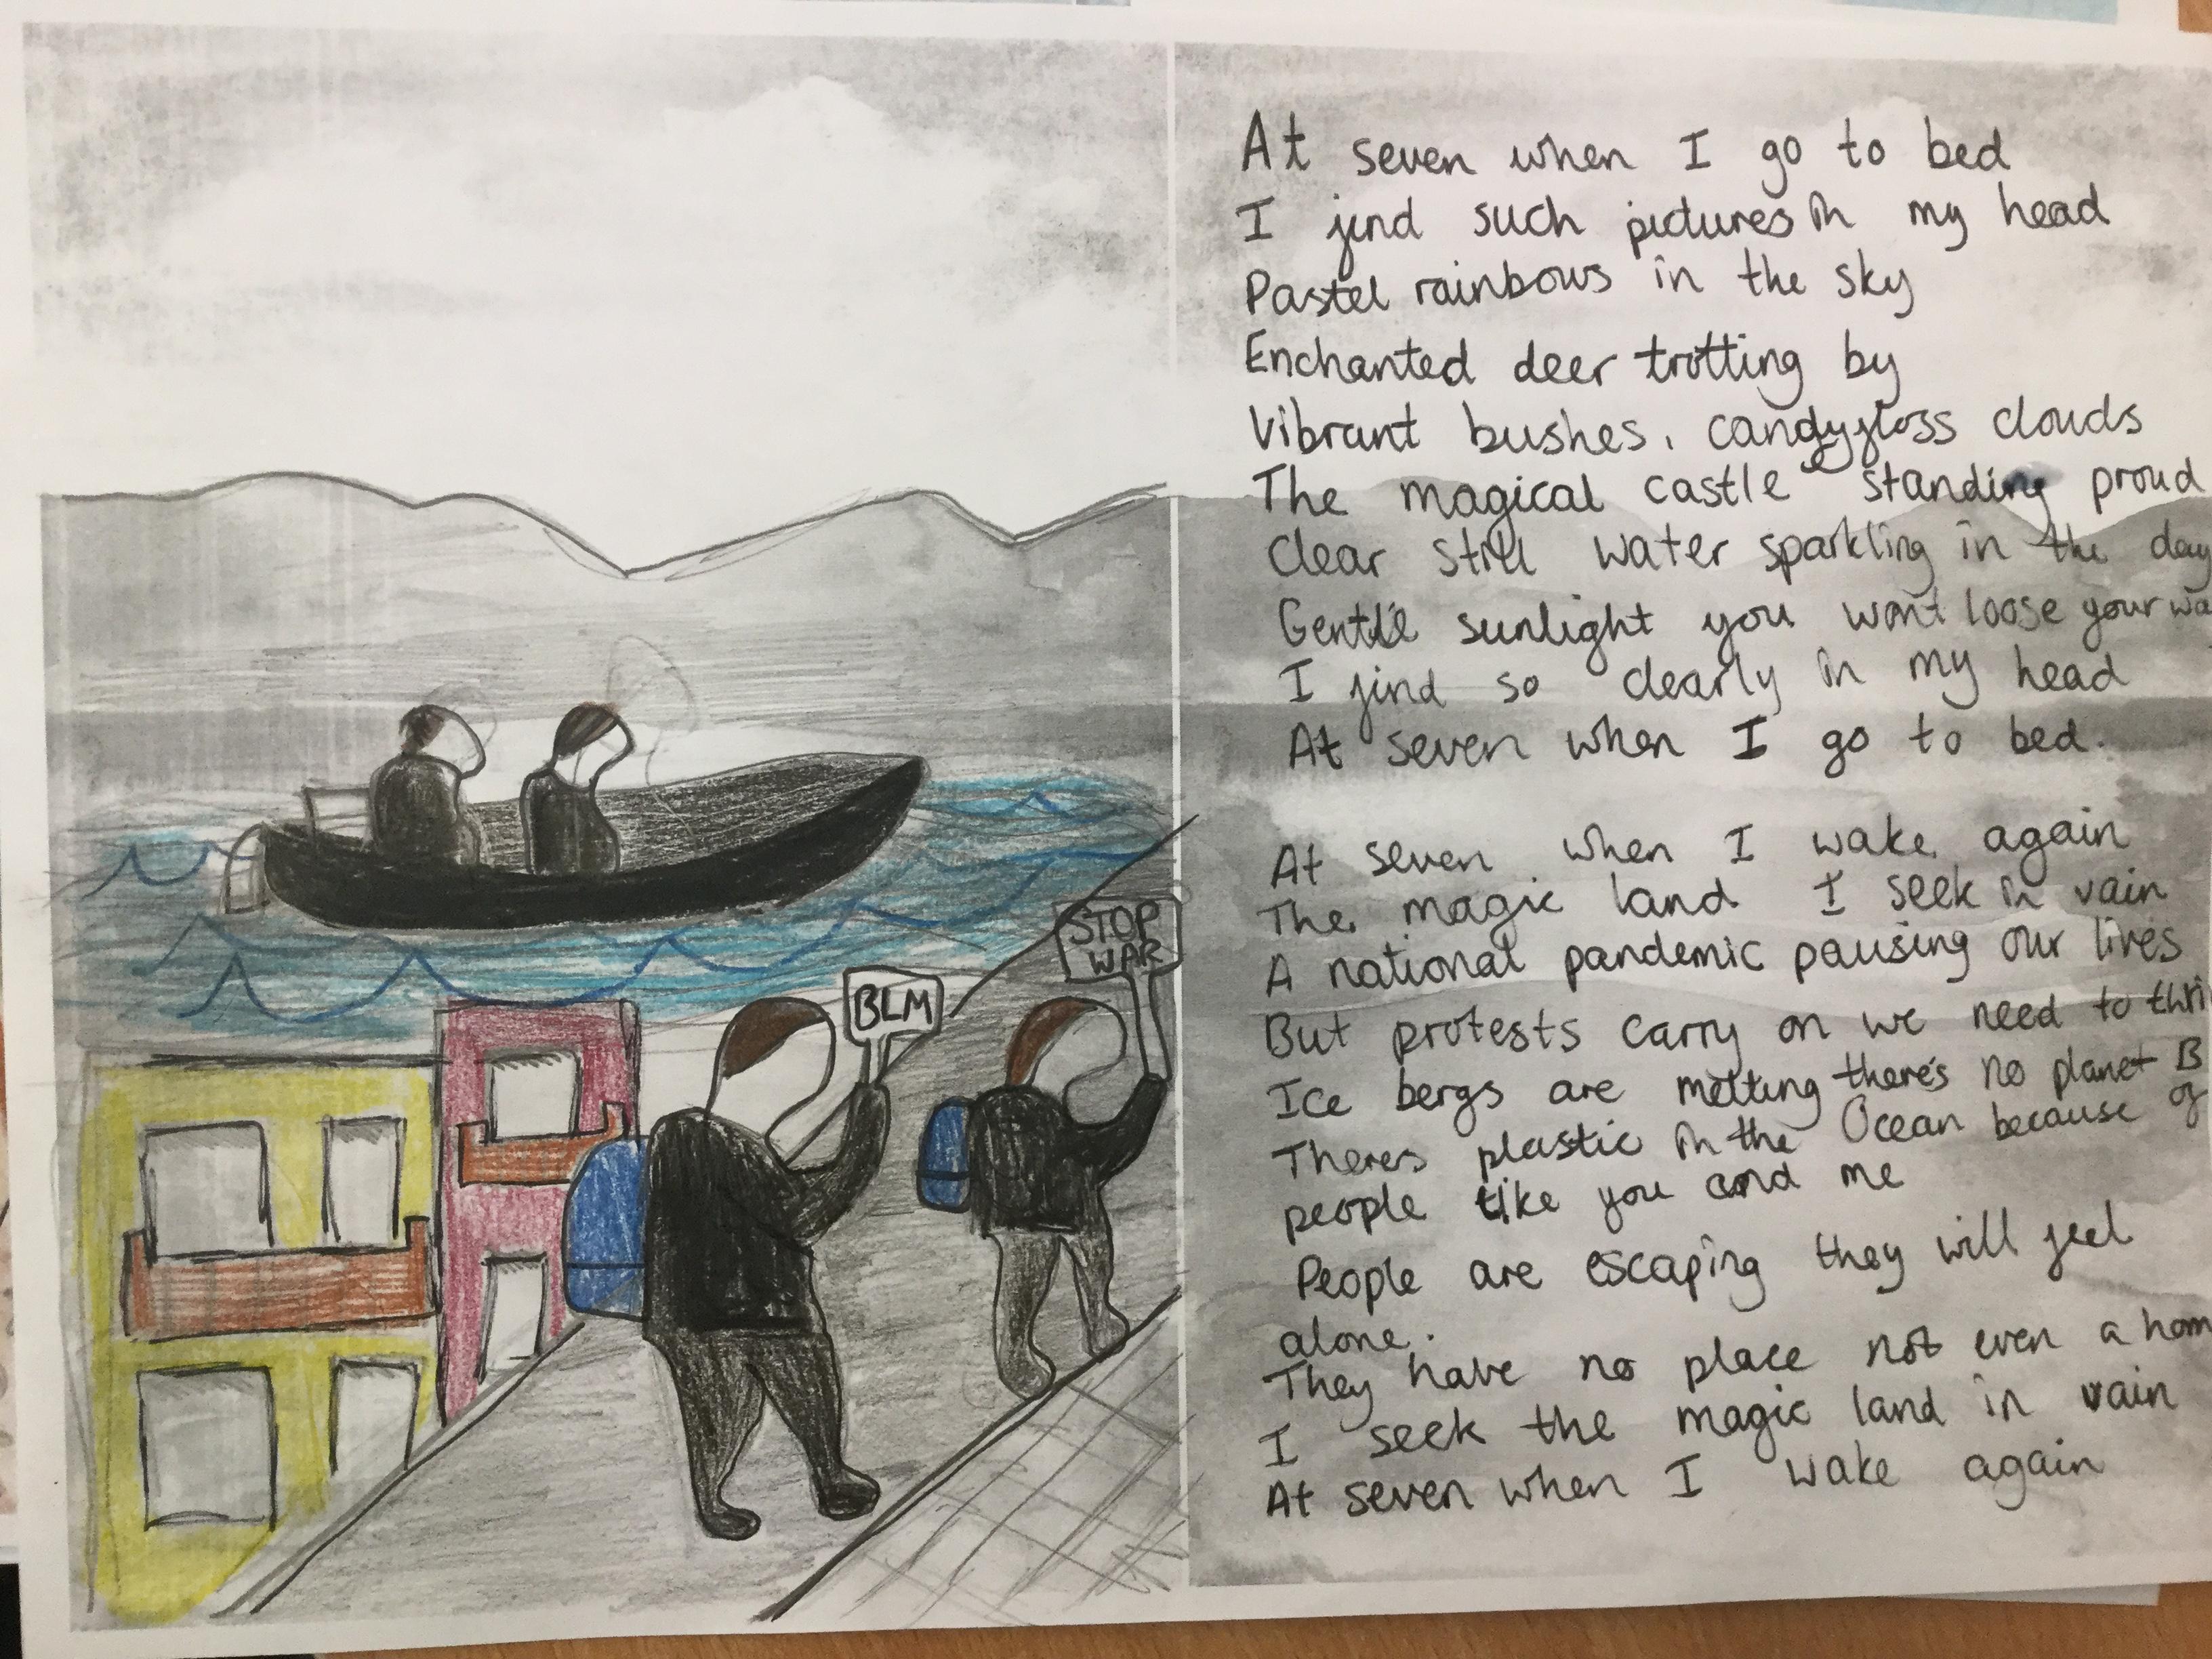 STOP
WAR
BLM
At seven when I go to bed
I find such pictures in my head
Pastel rainbows in the sky
Enchanted deer trotting by
Vibrant bushes, candyfloss clouds
The magical castle standing proud
Clear still water sparkling in the day
Gentle sunlight you wont loose your wa
I find so clearly in my head
At seven when I go to bed.
At seven when I wake again
The magic land I seek in vain
A national pandemic pausing our lives
But protests carry on we need to thri
Ice bergs are melting there's no planet B
Theres plastic in the Ocean because of
people like you and me
People are escaping they will feel
alone.
They have no place not even a hom
I seek the magic land in vain
At seven when I wake again